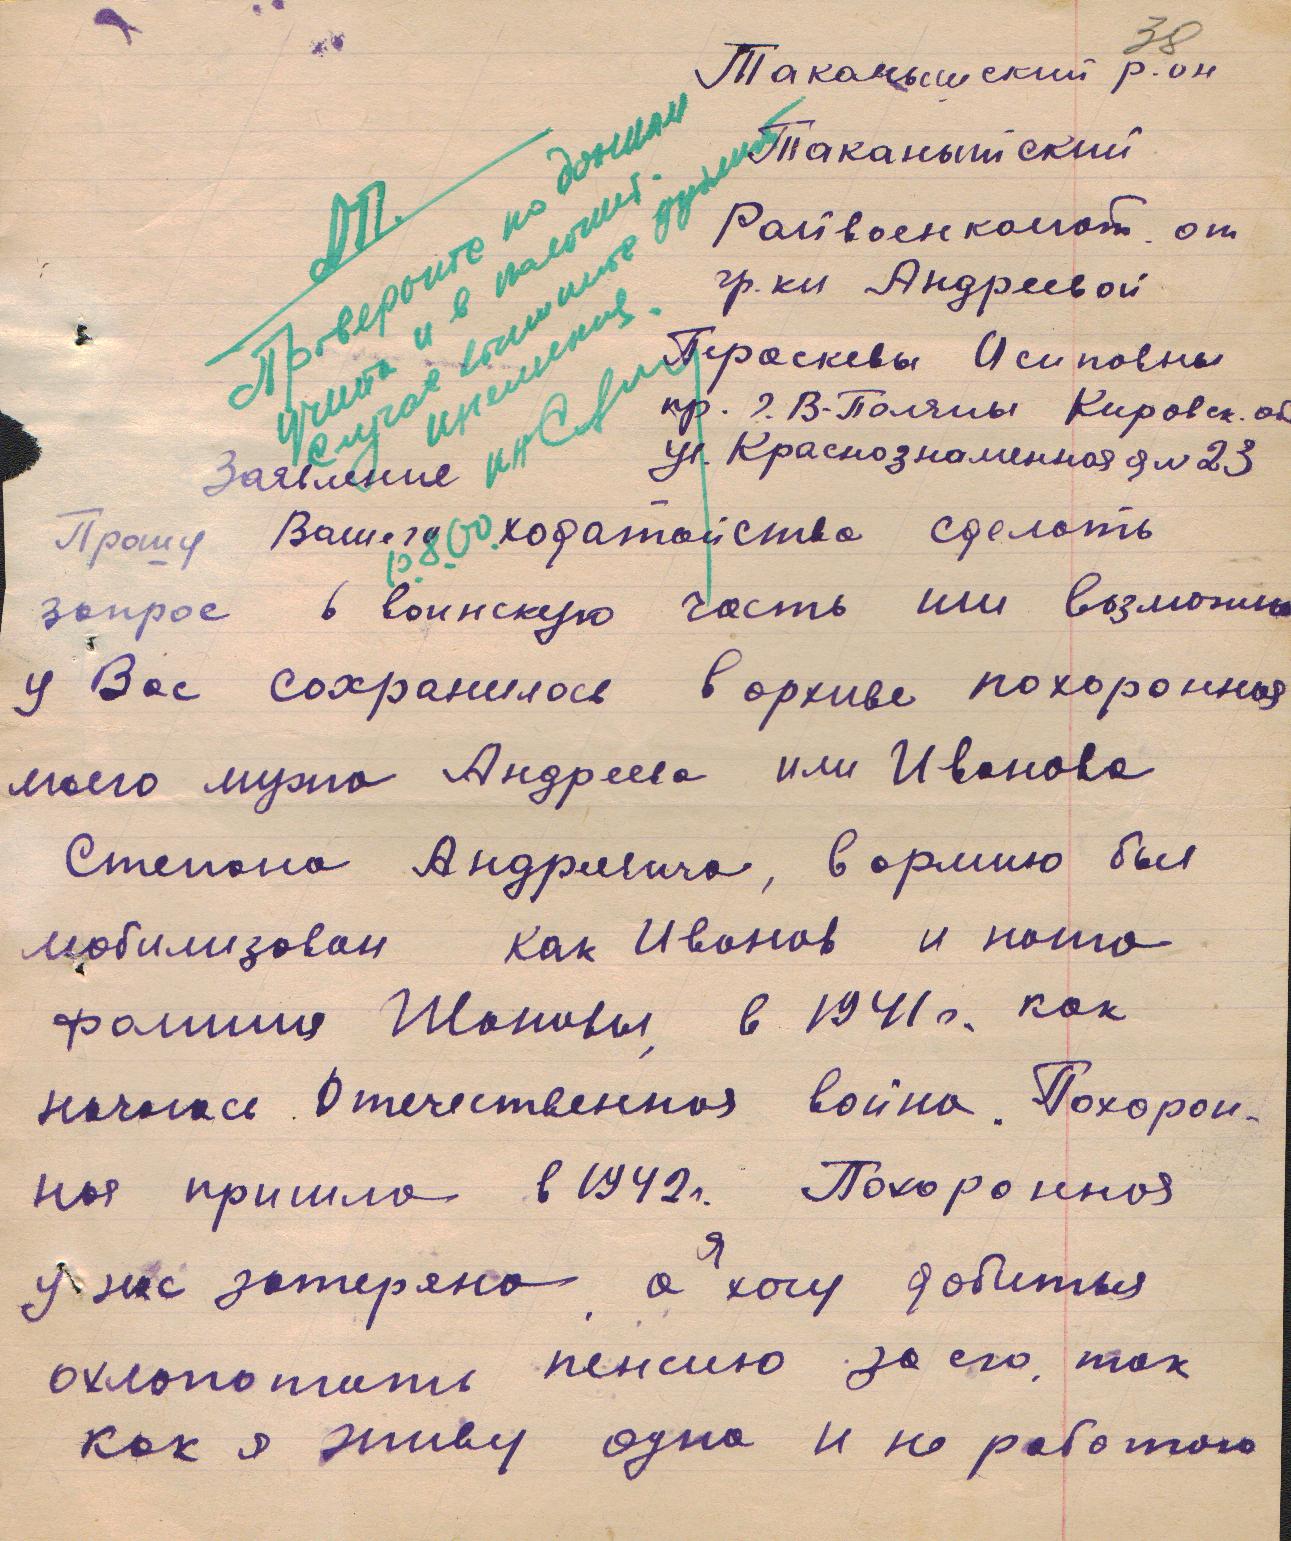 38
Таканышский р-он
Таканышский
Райвоенкомат от
гр.ки Андреевой
Пераскевы Исиповны
пр. г. В-Поляны Кировск. об
ул. Краснознаменная д № 23
ДП.
Проверьте по данным
учета и в
случае вышлите
Заявление
Прошу Вашего ходатайства сделать
запрос в воинскую часть или возможно
у Вас сохранилось в архиве похоронная
моего мужа Андреева или Иванова
Степана Андреевича, в армию был
мобилизован как Иванов и наша
фамилия Ивановы, в 1941 г. как
началась Отечественная война. Похорон-
ная пришла в 1942 г. Похоронная
у нас затеряна, а я хочу добиться
охлопотать пенсию за его, так
как я живу одна и не работаю